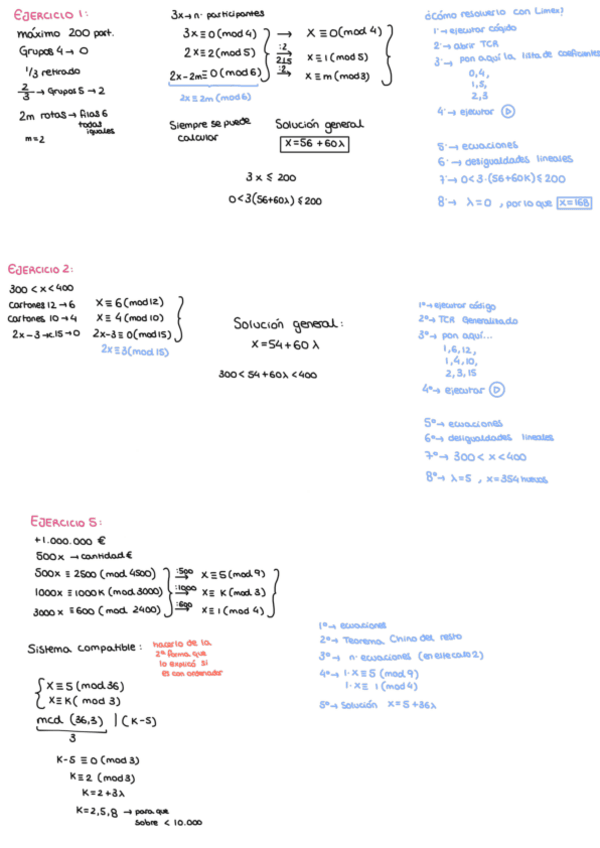 EJERCICIO 1:
máximo 200 part.
Grupos 4 → 0
1/3 retirado
2/3 → Grupos 5 → 2
2m rotas → filas 6
todas iguales
m = 2
3x → n. participantes
3x ≡ 0 (mod 4) → x ≡ 0 (mod 4)
2x ≡ 2 (mod 5) :2 → x ≡ 1 (mod 5)
2x - 2m ≡ 0 (mod 6) :2 → x ≡ m (mod 3)
2x ≡ 2m (mod 6)
Siempre se puede calcular
Solución general
x = 56 + 60λ
3x ≤ 200
0 < 3(56+60λ) ≤ 200
¿Cómo resolverlo con Limex?
1º → ejecutar código
2º → abrir TCR
3º → pon aquí la lista de coeficientes
0,4,
1,5,
2,3
4º → ejecutar
5º → ecuaciones
6º → desigualdades lineales
7º → 0 < 3·(56+60K) ≤ 200
8º → λ = 0, por lo que x = 168
EJERCICIO 2:
300 < x < 400
Cartones 12 → 6 x ≡ 6 (mod 12)
Cartones 10 → 4 x ≡ 4 (mod 10)
2x - 3 → 15 → 0 2x - 3 ≡ 0 (mod 15)
2x ≡ 3 (mod 15)
Solución general:
x = 54 + 60λ
300 < 54 + 60λ < 400
1º → ejecutar código
2º → TCR Generalizado
3º → pon aquí...
1, 6, 12,
1, 4, 10,
2, 3, 15
4º → ejecutar
5º → ecuaciones
6º → desigualdades lineales
7º → 300 < x < 400
8º → λ = 5, x = 354 huevos
EJERCICIO 5:
+1.000.000 €
500x → cantidad €
500x ≡ 2500 (mod 4500) :500 → x ≡ 5 (mod 9)
1000x ≡ 1000K (mod 3000) :1000 → x ≡ K (mod 3)
3000x ≡ 600 (mod 2400) :600 → x ≡ 1 (mod 4)
Sistema compatible:
hacerlo de la
2ª forma que
lo explicó si
es con ordenador
x ≡ 5 (mod 36)
x ≡ K (mod 3)
mcd (36,3) | (K-5)
3
K-5 ≡ 0 (mod 3)
K ≡ 2 (mod 3)
K = 2 + 3λ
K = 2, 5, 8 → para que
sobre < 10.000
1º → ecuaciones
2º → Teorema Chino del resto
3º → n. ecuaciones (en este caso 2)
4º → 1·x ≡ 5 (mod 9)
1·x ≡ 1 (mod 4)
5º → Solución x = 5 + 36λ